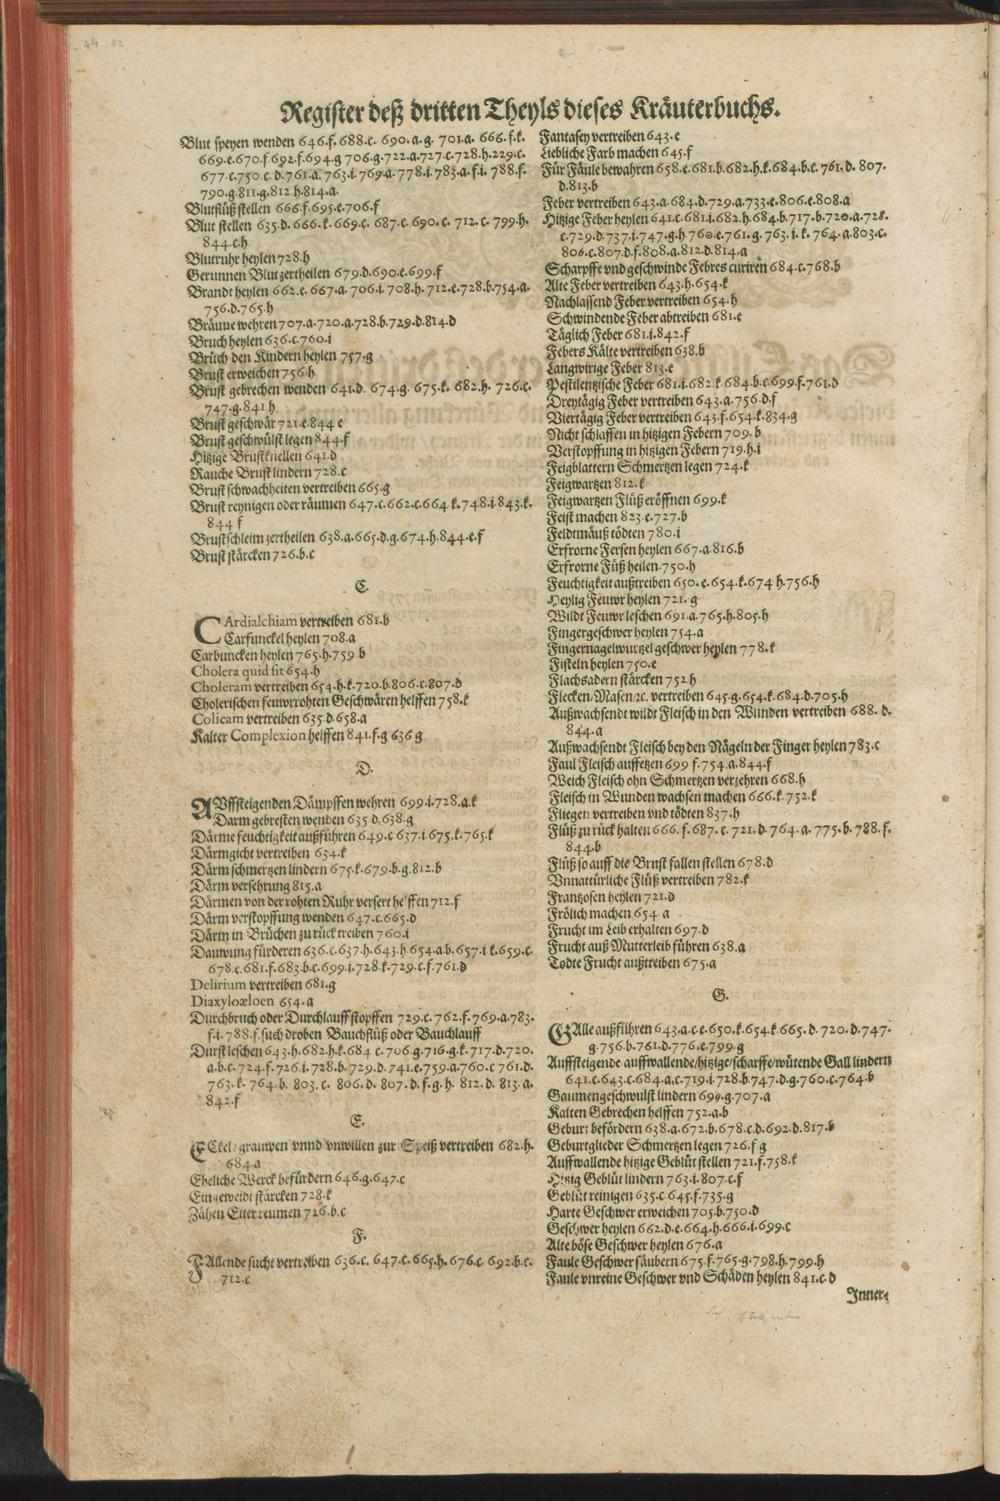 Register deß dritten Theyls dieses Kräuterbuchs.
Blut speyen wenden 646.f.688.c. 690.a.g. 701.a. 666.f.k.
669.e.670.f.692.f.694.g 706.g.722.a.727.c.728.h.229.c.
677.c.750.c.d.761.a.763.i.769.a.778.i.783.a.f.i.788.f.
790.g.811.g.812.h.814.a.
Blutflüß stellen 666.f.695.e.706.f
Blut stellen 635.d.666.k.669.c. 687.c. 690.c. 712.c. 799.h.
844.c.h
Blutruhr heylen 728.h
Gerunnen Blut zertheilen 679.d.690.e.699.f
Brandt heylen 662.e.667.a.706.i.708.h.712.e.728.b.754.a.
756.d.765.h
Bräune wehren 707.a.720.a.728.b.729.d.814.d
Bruch heylen 636.c.760.i
Brüch den Kindern heylen 757.g
Brust erweichen 756 h
Brust gebrechen wenden 641.d. 674.g. 675.k. 682.h. 726.c.
747.g.841 h
Brust geschwär 721.e.844 e
Brust geschwülst legen 844.f
Hitzige Brust knellen 641.d
Rauche Brust lindern 728.c
Brust schwachheiten vertreiben 665.g
Brust reynigen oder räumen 647.c.662.c.664 k.748.i.843.k.
844 f
Brustschleim zertheilen 638.a.665.d.g.674.h.844.e.f
Brust stärcken 726.b.c
C.
CArdialchiam vertreiben 681.b
Carfunckel heylen 708.a
Carbuncken heylen 765.h.759 b
Cholera quid sit 654.h
Choleram vertreiben 654.h.k.720.b.806.c.807.d
Cholerischen feuwrrohten Geschwären helffen 758.k
Colicam vertreiben 635.d.658.a
Kalter Complexion helffen 841.f.g 636 g
D.
AVffsteigenden Dämpffen wehren 699.i.728.a.k
Darm gebresten wenden 635 d.638.g
Därme feuchtigkeit außführen 649.c 637.i 675.k.765.k
Därmgicht vertreiben 634.k
Därm schmertzen lindern 675.k.679.b.g.812.b
Därm versehrung 815.a
Därmen von der rohten Ruhr versert helffen 712.f
Därm verstopffung wenden 647.c.665.d
Därm in Brüchen zu rück treiben 760.i
Dauwung fürderen 636.c.637.h.643.h 654.a.b.657.i k.659.c.
678.c.681.f.683.b.c.699.i.728.k.729.c.f.761.d
Delirium vertreiben 681.g
Diaxyloæloen 654.a
Durchbruch oder Durchlauff stopffen 729.c.762.f.769.a.783.
f.i. 788.f. such droben Bauchflüß oder Bauchlauff
Durst leschen 643.h.682.h.k.684 c.706.g.716.g.k.717.d.720.
a.b.c.724.f.726.i.728.b.729.d.741.e.759.a.760.c 761.d.
763.k. 764.b. 803.c. 806.d. 807.d.f.g.h. 812.d. 813.a.
842.f
E.
ECkel/grauwen vnnd vnwillen zur Speiß vertreiben 682.h.
684.a
Eheliche Werck befürdern 646.g.647.c
Eingeweidt stärcken 728.k
Zähen Eiter reumen 726.b.c
F.
FAllende sucht vertreiben 636.c. 647.c.665.h.676.c. 692.b.c.
712.c
Fantasey vertreiben 643.e
Liebliche Farb machen 645.f
Für Fäule bewahren 658.e.681.b.682.h.k.684.b.c. 761.d. 807.
d.813.b
Feber vertreiben 643.a.684.d.729.a.733.e.806.e.808.a
Hitzige Feber heylen 641.c.681.i.682.h.684.b.717.b.720.a.728.
c.729.d.737.i.747.g.h.760.e.761.g.763.i.k. 764.a.803.c.
806.c.807.d.f.808.a.812.d.814.a
Scharpffe vnd geschwinde Febres curiren 684.c.768.b
Alte Feber vertreiben 643.h.654.k
Nachlassend Feber vertreiben 654.h
Schwindende Feber abtreiben 681.e
Täglich Feber 681.i.842.f
Febers Kälte vertreiben 638.b
Langwirige Feber 813.e
Pestilentzische Feber 681.i.682 k.684.b.c.699.f.761.d
Dreytägig Feber vertreiben 643.a.756.d.f
Viertägig Feber vertreiben 643.f.654.k.834.g
Nicht schlaffen in hitzigen Febern 709.b
Verstopffung in hitzigen Febern 719.h.i
Feigblattern Schmertzen legen 724.k
Feigwartzen 812.k
Feigwartzen Flüß eröffnen 699.k
Feist machen 823.c.727.b
Feldtmäuß tödten 780.i
Erfrorne Fersen heylen 667.a.816.b
Erfrorne Füß heilen.750.h
Feuchtigkeit außtreiben 650.e.654.k.674 h.756.h
Heylig Feuwr heylen 721.g
Wildt Feuwr leschen 691.a.765.h.805.h
Fingergeschwer heylen 754.a
Fingernagelwurtzel geschwer heylen 778.k
Fisteln heylen 750.e
Flachsadern stärcken 752.h
Flecken/Masen ꝛc. vertreiben 645.g.654.k.684.d.705.h
Außwachsendt wildt Fleisch in den Wunden vertreiben 688.d.
844.a
Außwachsendt Fleisch bey den Nägeln der Finger heylen 783.c
Faul Fleisch auffetzen 699 f.754.a.844.f
Weich Fleisch ohn Schmertzen verzehren 668.h
Fleisch in Wunden wachsen machen 666.k.752.k
Fliegen vertreiben vnd tödten 837.h
Flüß zu rück halten 666.f.687.c.721.d.764.a.775.b.788.f.
844.b
Flüß so auff die Brust fallen stellen 678.d
Vnnattürliche Flüß vertreiben 782.k
Frantzosen heylen 721.d
Frölich machen 654.a
Frucht im Leib erhalten 697.d
Frucht auß Mutterleib führen 638.a
Todte Frucht außtreiben 675.a
G.
GAlle außführen 643.a.c.e.650.k.654.k.665.d.720.d.747.
g.756.b.761.d.776.e.799.g
Auffsteigende auffwallende/hitzige/scharffe/wütende Gall lindern
641.c.643.c.684.a.c.719.i.728.b.747.d.g.760.c.764.b
Gaumengeschwulst lindern 699.g.707.a
Kalten Gebrechen helffen 752.a.b
Geburt befördern 638.a.672.b.678.c.d.692.d.817.b
Geburtglieder Schmertzen legen 726.f g
Auffwallende hitzige Geblüt stellen 721.f.758.k
Hitzig Geblüt lindern 763.i.807.c.f
Geblüt reinigen 635.c.645.f.735.g
Harte Geschwer erweichen 705.b.750.d
Geschwer heylen 662.d.e.664.h.666.i.699.c
Alte böse Geschwer heylen 676.a
Faule Geschwer säubern 675.f.765.g.798.h.799.h
Faule vnreine Geschwer vnd Schäden heylen 841.c.d
Inner-